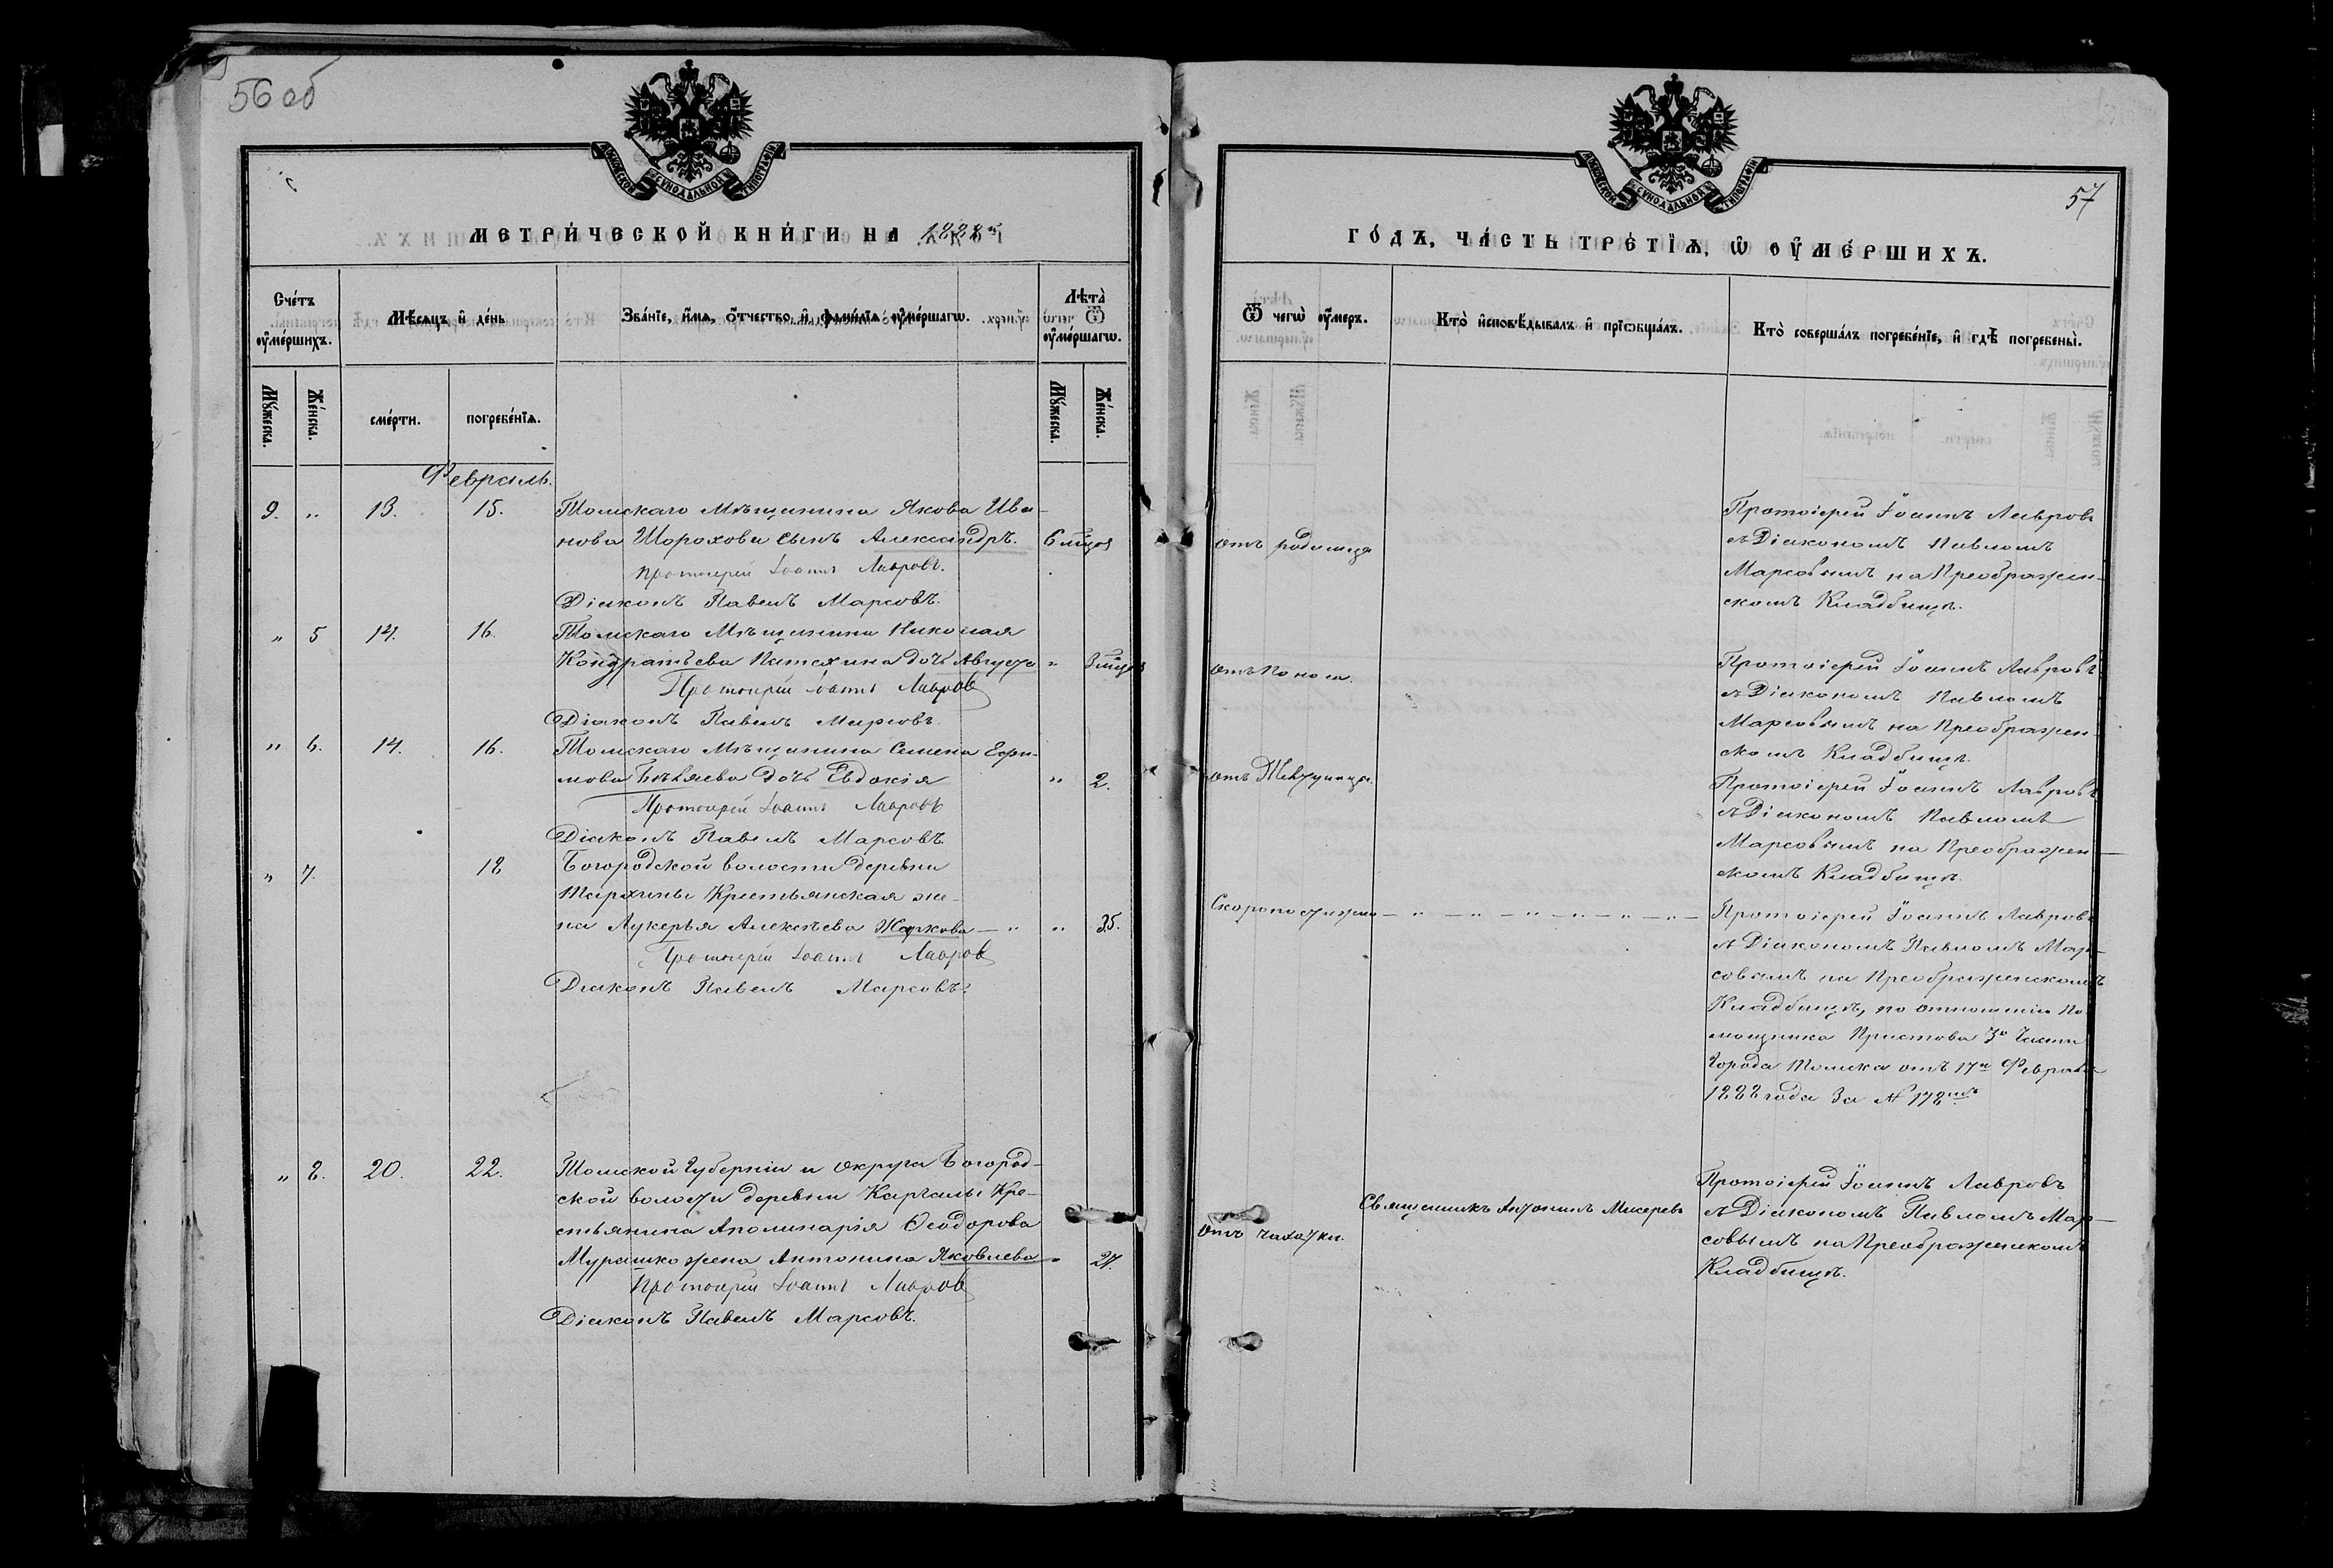 56 об
МОСКОВСКОЙ СУНОДАЛЬНОЙ ТИПОГРАФІИ
МЕТРИ́ЧЕСКОЙ КНИ́ГИ НА 1888й
Сче́тъ ᲂу҆ме́ршихъ.
Мѣ́сѧцъ и҆ де́нь
Зва́нїе, и҆́мѧ, ѻ҆́тчество, и҆ фами́лїѧ ᲂу҆ме́ршагѡ.
Лѣ́та ᲂу҆ме́ршагѡ.
Мꙋ́жеска.
Же́нска.
сме́рти.
погребе́нїѧ.
Мꙋ́жеска.
Же́нска.
Февраль.
9. „ 13. 15. Томскаго Мѣщанина Якова Ива-
нова Шорохова сынъ Александръ. 6 мѣцов
Протоіерей Іоаннъ Лавровъ.
Діаконъ Павелъ Марсовъ.
„ 5 14. 16. Томскаго Мѣщанина Николая
Кондратьева дочь Августа „ 3 мѣцов
Протоіерей Іоаннъ Лавров
Діаконъ Павелъ Марсовъ.
„ 6. 14. 16. Томскаго Мѣщанина Семена Ефи-
мова Бѣляева дочь Евдокія „ 2.
Протоіерей Іоаннъ Лавровъ
Діаконъ Павелъ Марсовъ.
„ 7. 18 Богородской волости деревни
Крестьянская же-
на Лукерья Алексѣева Жаркова — „ „ 35.
Протоіерей Іоаннъ Лавров
Діаконъ Павелъ Марсовъ.
„ 8. 20. 22. Томской Губерніи и округа Богород-
ской волости деревни Каргалы Кре-
стьянина Аполинарія Ѳеодорова
Мурашко жена Антонина Яковлева „ 27.
Протоіерей Іоаннъ Лавров
Діаконъ Павелъ Марсовъ.
57
МОСКОВСКОЙ СУНОДАЛЬНОЙ ТИПОГРАФІИ
ГО́ДЪ, ЧА́СТЬ ТРЕ́ТЇѦ, Ѡ ᲂУ҆МЕ́РШИХЪ.
Ѿ чегѡ̀ ᲂу҆́меръ.
Кто̀ и҆сповѣ́дывалъ и҆ прїѡбща́лъ.
Кто̀ соверша́лъ погребе́нїе, и҆ гдѣ̀ погребены̀.
отъ родимца
Протоіерей Іоаннъ Лавровъ
съ Діакономъ Павломъ
Марсовымъ на Преображен-
скомъ Кладбищѣ.
отъ Поноса.
Протоіерей Іоаннъ Лавровъ
съ Діакономъ Павломъ
Марсовымъ на Преображен-
скомъ Кладбищѣ.
отъ
Протоіерей Іоаннъ Лавровъ
съ Діакономъ Павломъ
Марсовымъ на Преображен-
скомъ Кладбищѣ.
Скоропостижно — „ — „ — „ — „ — „ — „ —
Протоіерей Іоаннъ Лавровъ
съ Діакономъ Павломъ Мар-
совымъ на Преображенскомъ
Кладбищѣ, по отношенію По-
мощника Пристава 3й Части
Города Томска отъ 17го Февраля
1888 года За № 178мъ
отъ чахотки.
Священникъ Антонинъ Мисюревъ
Протоіерей Іоаннъ Лавровъ
съ Діакономъ Павломъ Мар-
совымъ на Преображенскомъ
Кладбищѣ.